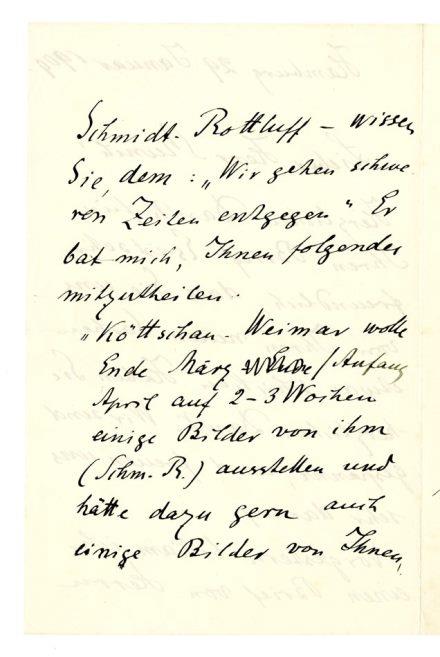 Schmidt-Rottluff – wissen
Sie, dem: „Wir gehen schwe
ren Zeiten entgegen" Er
bat mich, Ihnen folgendes
mitzutheilen.
„Köttschau-Weimar wolle
Ende März /Anfang
April auf 2–3 Wochen
einige Bilder von ihm
(Schm. R.) ausstellen und
hätte dazu gern auch
einige Bilder von Ihnen,